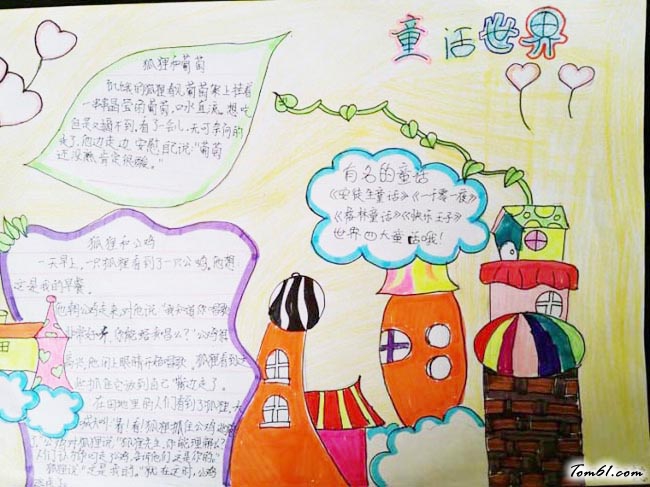 童话世界
狐狸和葡萄
饥饿的狐狸看见葡萄架上挂着
一串串晶莹的葡萄，口水直流，想吃
但是又摘不到。看了一会儿，无可奈何的
走了，他边走边安慰自己说："葡萄
还没熟肯定很酸。"
有名的童话
《安徒生童话》《一千零一夜》
《格林童话》《快乐王子》
世界四大童话哦！
狐狸和公鸡
一天早上，一只狐狸看到了一只公鸡。他想
这是我的早餐。
他朝公鸡走来，对他说："我知道你唱歌
非常好听，你能唱给我听么？"公鸡很
高兴，他闭上眼睛开始唱歌。狐狸看到这
些抓住它放到自己嘴边走了。
在田地里的人们看到了狐狸，大
喊大叫："看！看！狐狸抓住公鸡逃跑
了。"公鸡对狐狸说："狐狸先生，你能理解么？
人们认为你叼走了公鸡，告诉他们这是你的。"
狐狸说"这是我的。"就在这时，公鸡
Tom61.com